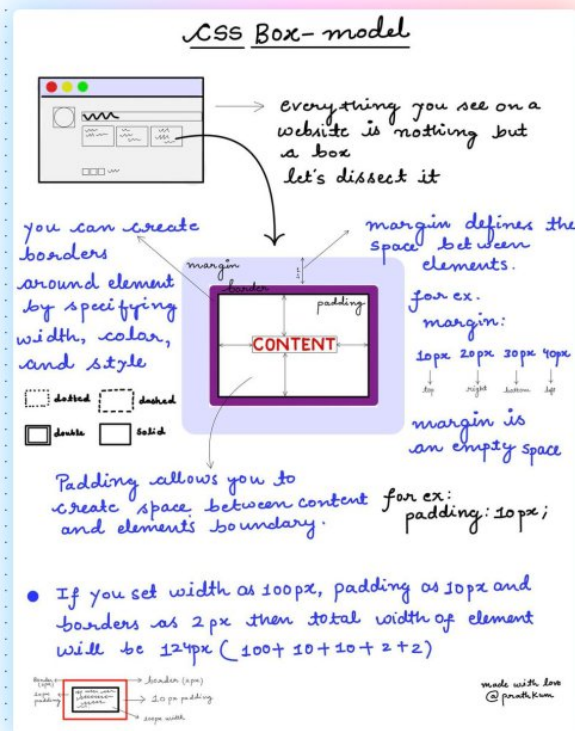 CSS Box-model
everything you see on a
website is nothing but
a box
let's dissect it
you can create
borders
around element
by specifying
width, color,
and style
dotted
dashed
double
solid
margin
border
padding
CONTENT
margin defines the
space between
elements.
for ex.
margin:
10px 20px 30px 40px
top right bottom left
margin is
an empty space
Padding allows you to
create space between content
and elements boundary.
for ex:
padding: 10px;
If you set width as 100px, padding as 10px and
borders as 2px then total width of element
will be 124px (100+10+10+2+2)
border (2px)
10px
padding
border (2px)
10px padding
100px width
made with love
@prathkum